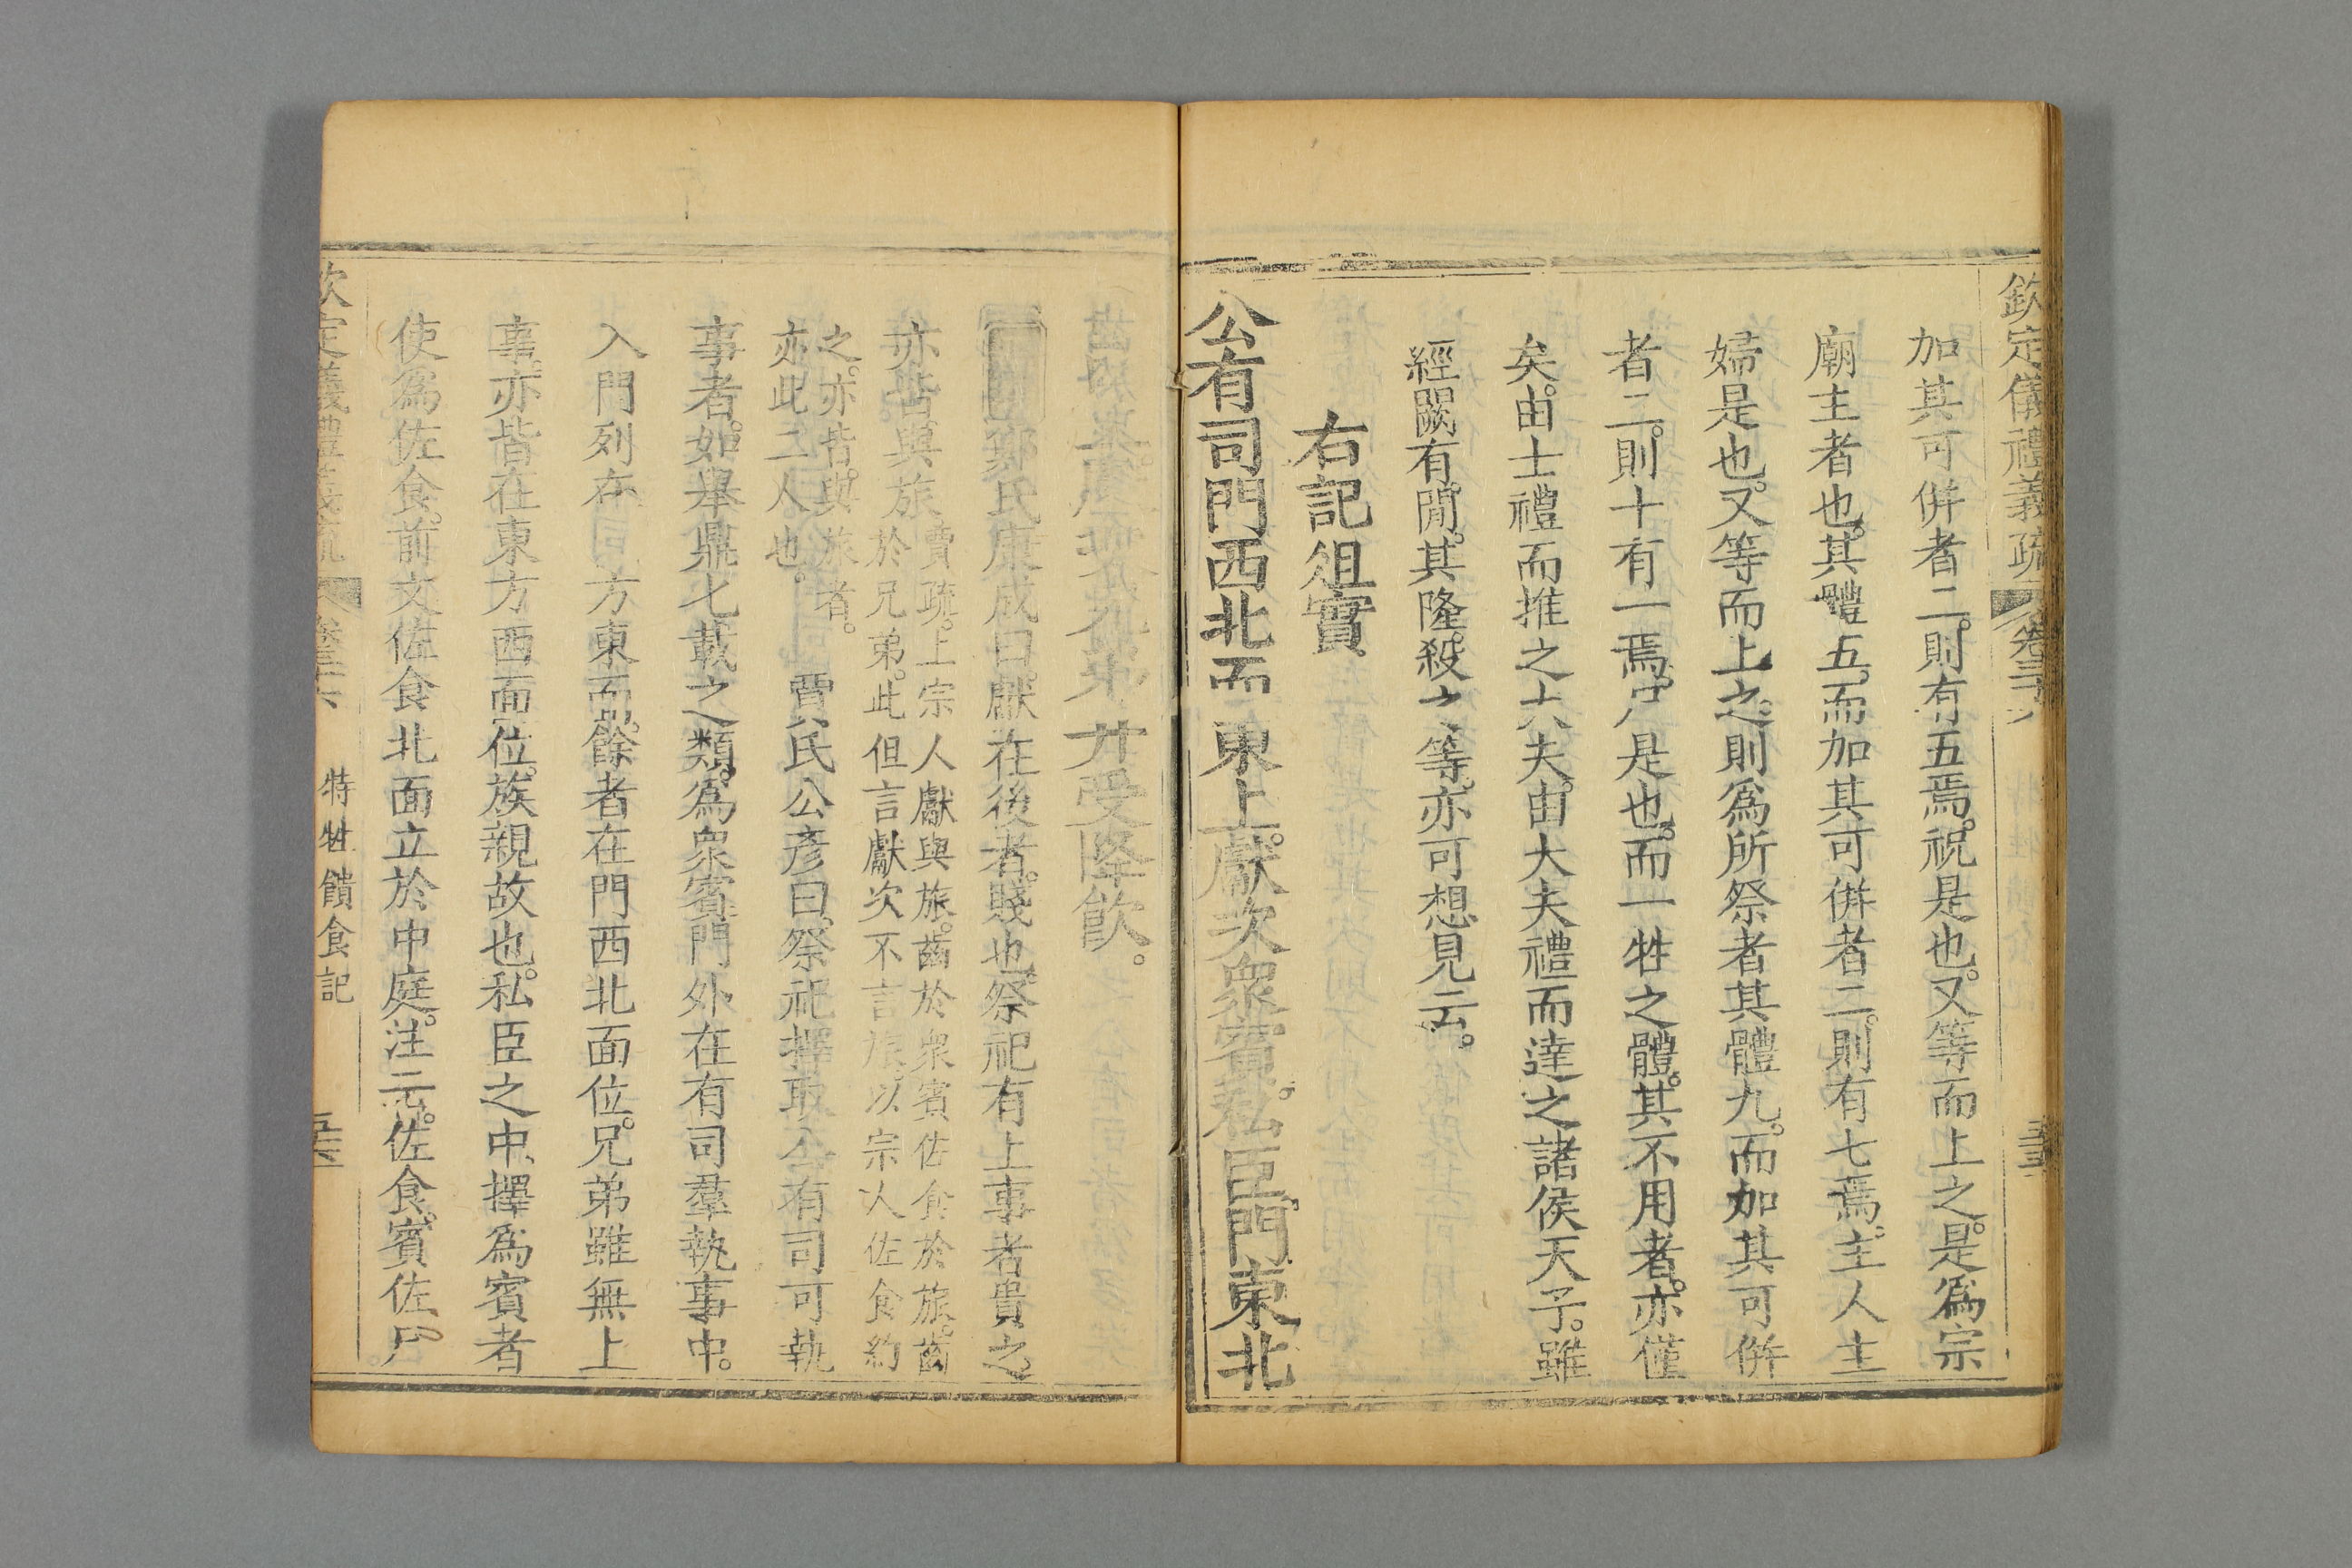 欽定儀禮義疏 卷三十六
加其可併者二。則有五焉。祝是也。又等而上之。是爲宗
廟主者也。其體五。而加其可併者二。則有七焉。主人主
婦是也。又等而上之。則爲所祭者其體九。而加其可併
者二。則十有一焉。尸是也。而一牲之體。其不用者。亦僅
矣。由士禮而推之大夫。由大夫禮而達之諸侯天子。雖
經闕有閒。其隆殺之等。亦可想見云。
右記俎實
公有司門西北面東上。獻次衆賓。私臣門東北
面西上。獻次兄弟。升受降飲。
鄭氏康成曰。獻在後者。賤也。祭祀有上事者貴之。
亦皆與旅 賈疏。上宗人獻與旅。齒於衆賓佐食於旅。齒
於兄弟。此但言獻次不言旅。以宗人佐食約
之。亦皆與旅者。
亦此二人也。 賈氏公彥曰。祭祀擇取公有司可執
事者。如舉鼎匕載之類。爲衆賓。門外在有司羣執事中。
入門列在 方東面。餘者在門西北面位。兄弟雖無上
事。亦皆在東方西面位。族親故也。私臣之中。擇爲賓者
使爲佐食。前文佐食北面立於中庭。注云。佐食。賓佐尸
欽定儀禮義疏 卷三十六 特牲饋食記